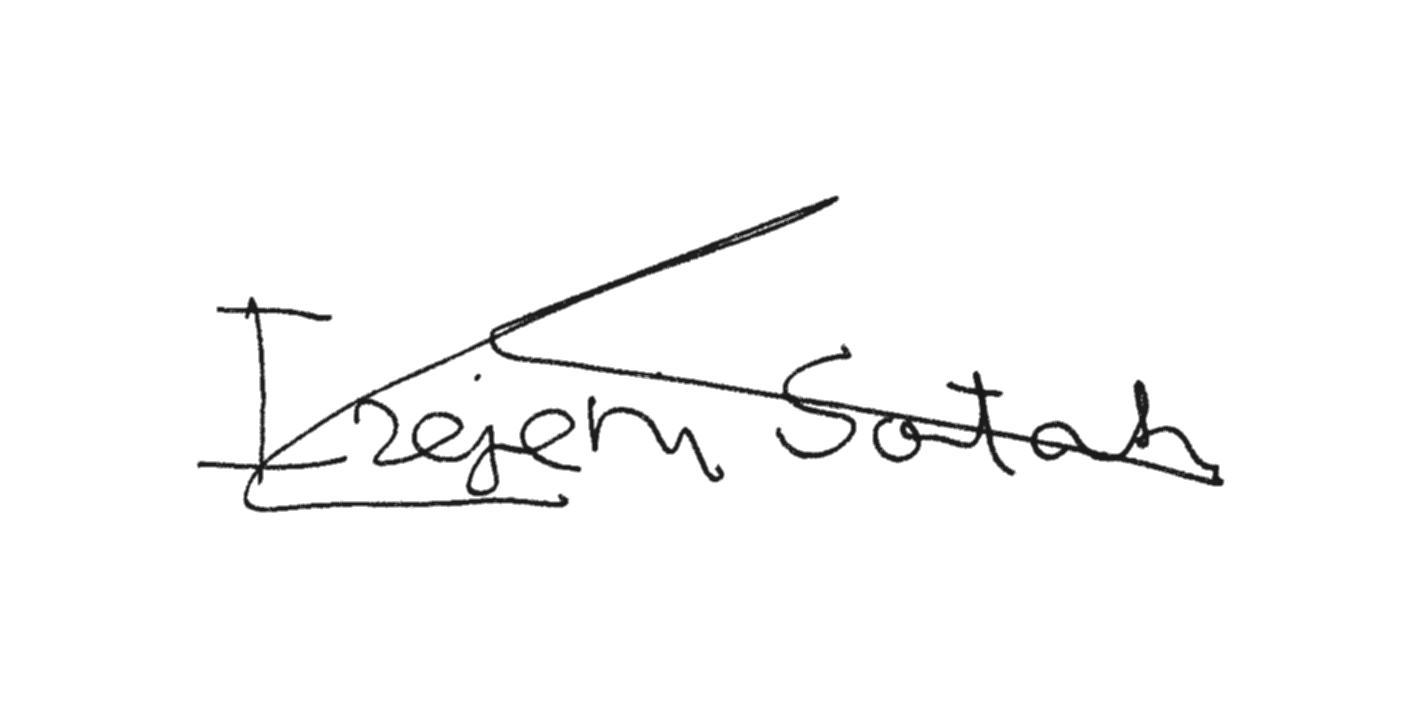 Izejem Sotah